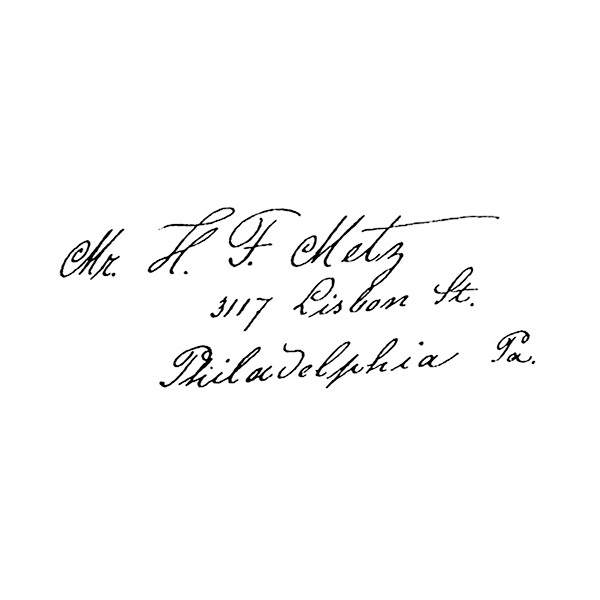 Mr. H. F. Metz
3117 Lisbon St.
Philadelphia Pa.